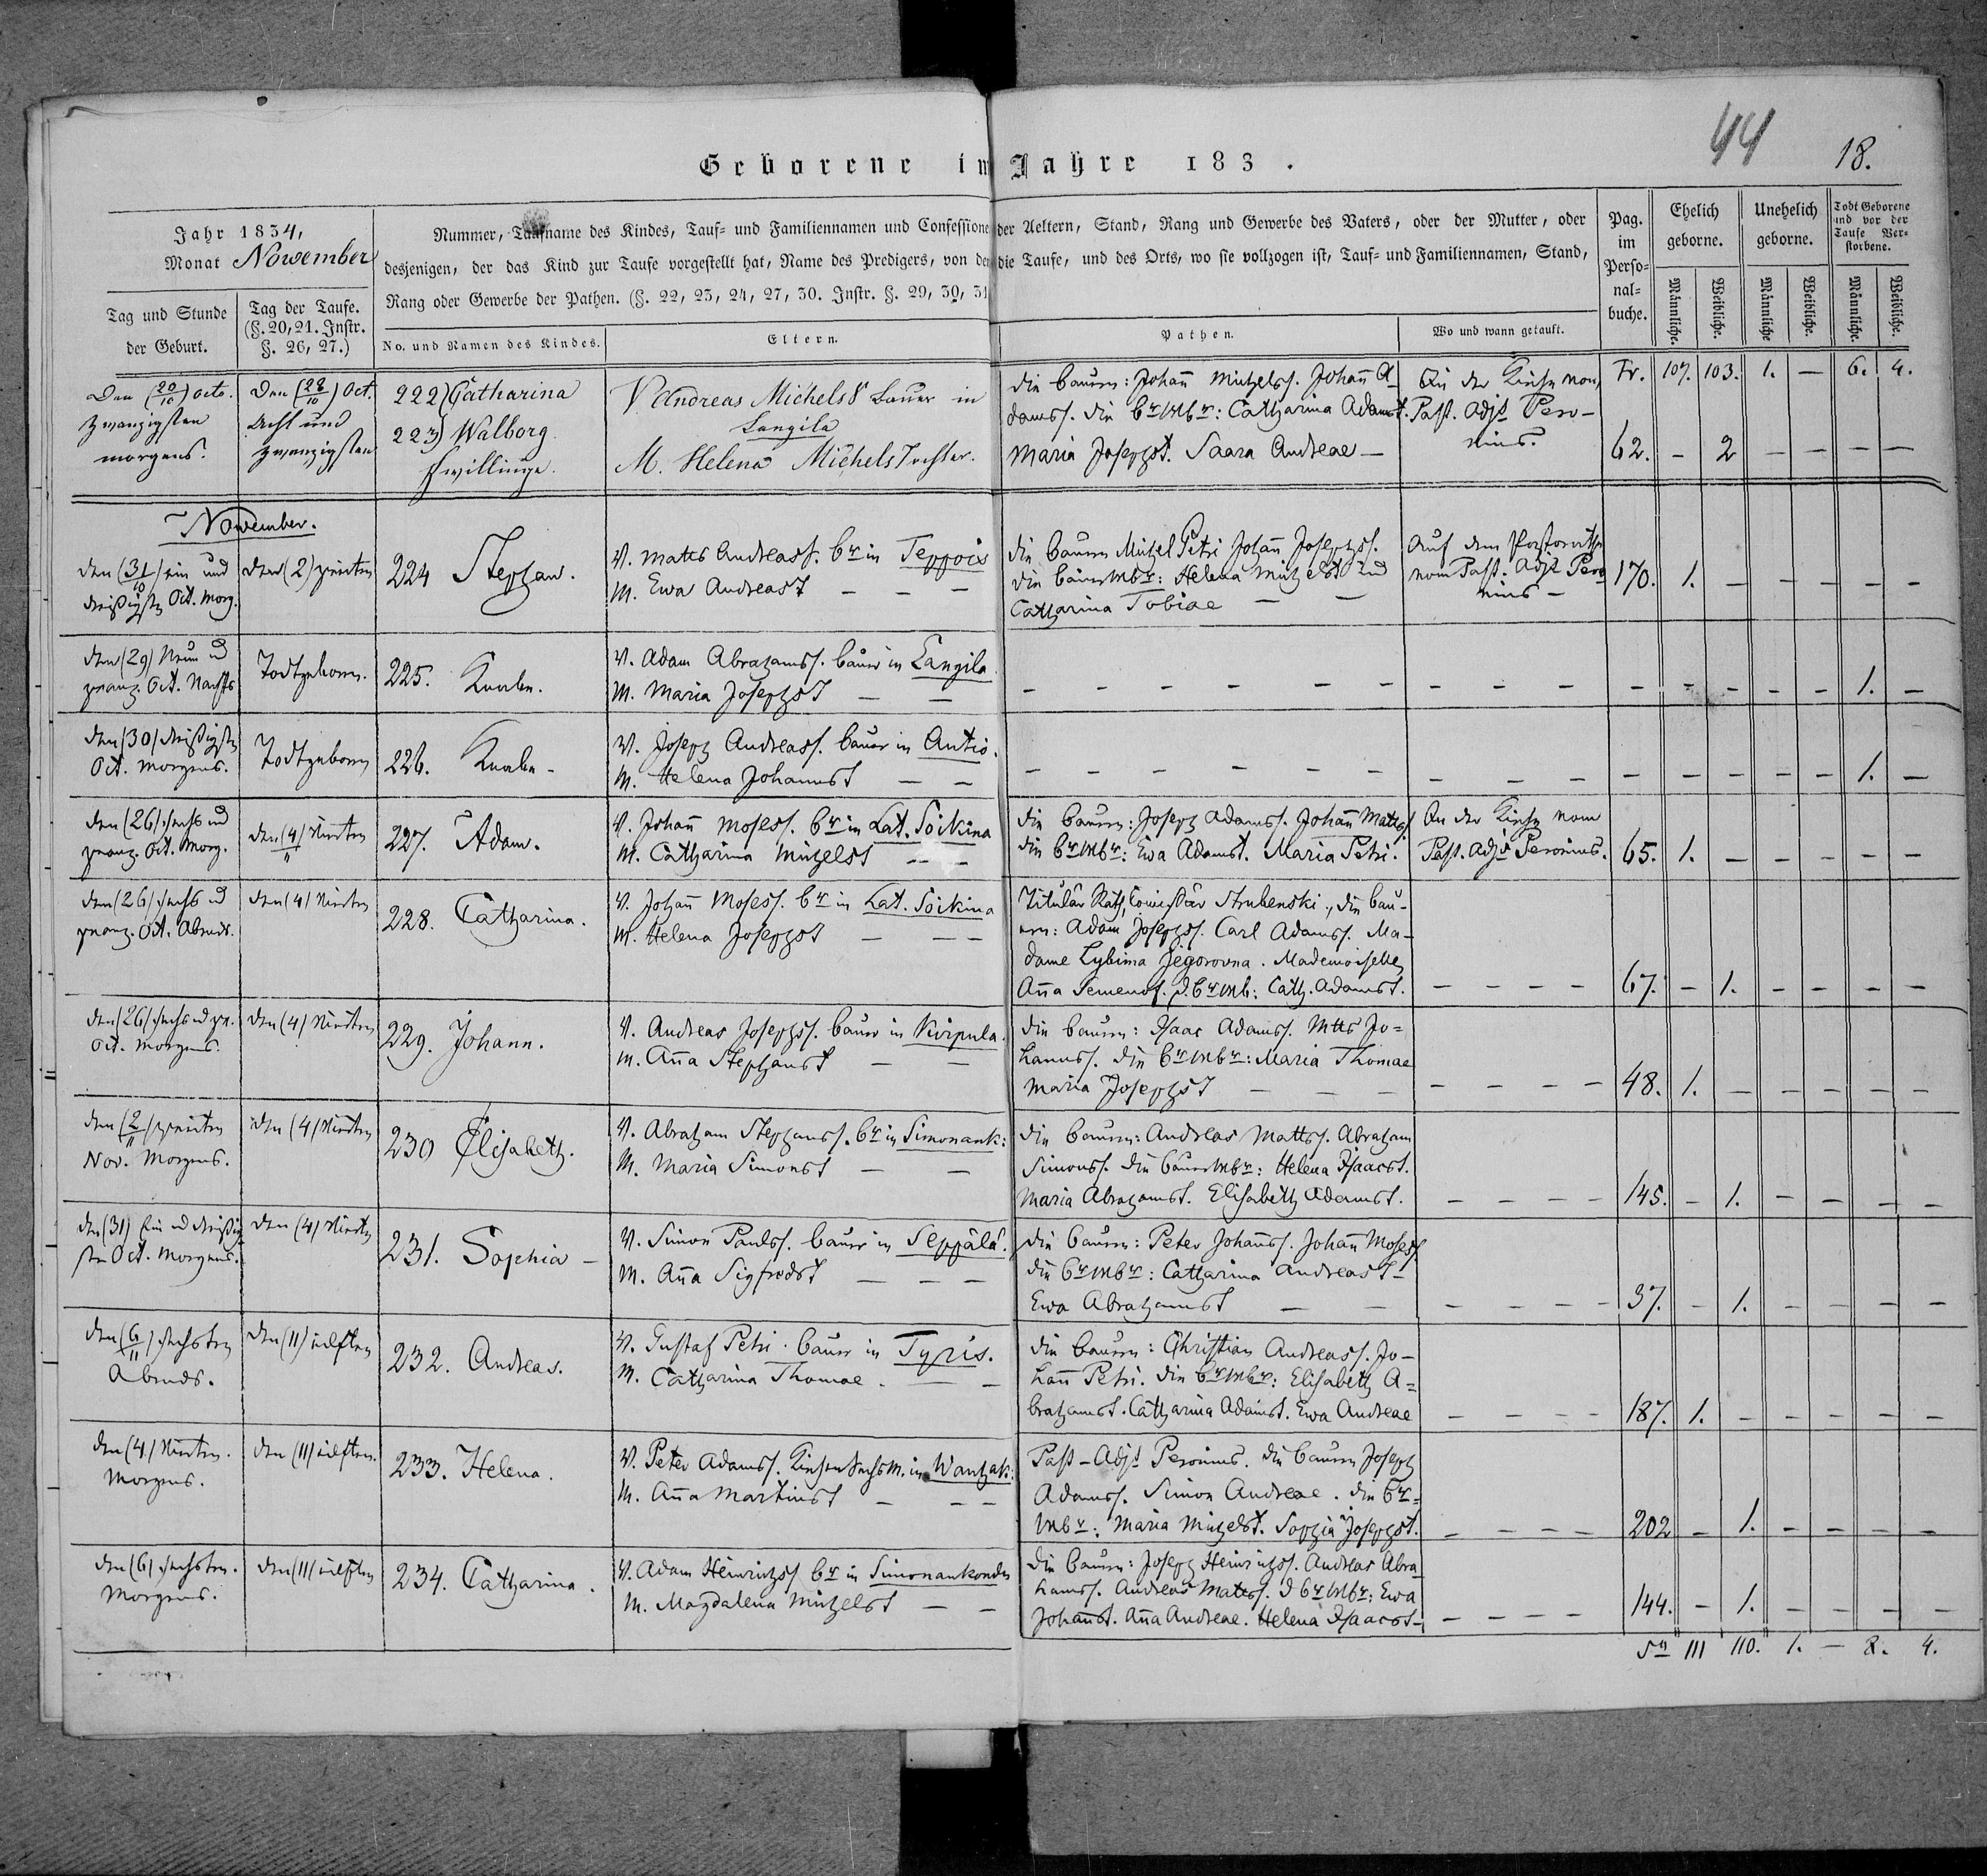 44
18.
Geborene im Jahre 183 .
Jahr 1834,
Monat November
Nummer, Taufname des Kindes, Tauf- und Familiennamen und Confessionen der Aeltern, Stand, Rang und Gewerbe des Vaters, oder der Mutter, oder
desjenigen, der das Kind zur Taufe vorgestellt hat, Name des Predigers, von dem die Taufe, und des Orts, wo sie vollzogen ist, Tauf- und Familiennamen, Stand,
Rang oder Gewerbe der Pathen. (§. 22, 23, 24, 27, 30. Instr. §. 29, 30, 31
Tag und Stunde
der Geburt.
Tag der Taufe.
(§. 20, 21. Instr.
§. 26, 27.)
No. und Namen des Kindes.
Eltern.
Pathen.
Wo und wann getauft.
Pag.
im
Perso-
nal-
buche.
Ehelich
geborne.
Unehelich
geborne.
Todt Geborene
und vor der
Taufe Ver-
storbene.
Männliche.
Weibliche.
Männliche
Weibliche.
Männliche.
Weibliche.
Tr. 107. 103. 1. — 6. 4.
Den (20/10) octo.
zwanzigsten
morgens.
Den (28/10) Oct.
Acht und
zwanzigsten
222) Catharina
223) Walborg
Zwillinge.
V Andreas Michelss Bauer in
Langila
M. Helena Michels Tochter.
die bauern: Johañ Michelss. Johañ A-
damss. die brwbr: Catharina Adamst.
Maria Josephst. Saara Andreae —
In der Kirche vom
Past. Adjt Pero-
nius.
62. — 2 — — — —
November.
den (31/10) ein und
dreißigsten Oct. Morg.
den (2) zweiten
224 Stephan.
V. Matts Andreass. br in Teppois
M. Ewa Andreast — — —
die bauern Michel Petri Johañ Josephss.
die bäurwbr: Helena Michelst und
Catharina Tobiae — —
Auf dem Pastorathe
vom Past. Adjt Pero
nius —
170. 1. — — — — —
den (29) Neun und
zwanz. Oct. Nachts
Todtgeboren.
225. Knabe.
V. Adam Abrahamss. bauer in Langila.
M. Maria Josephst — —
— — — — — — — — — — — — — — 1. —
den (30) dreißigsten
Oct. Morgens.
Todtgeboren
226. Knabe —
V. Joseph Andreass. bauer in Antio.
M. Helena Johannst — —
— — — — — — — — — — — — — — 1. —
den (26) sechs und
zwanz. Oct. Morg.
den (4/11) vierten
227. Adam.
V. Johañ Mosess. br in Lat. Soikina
M. Catharina Michelst — —
die bauern: Joseph Adamss. Johañ Matts.
die brwbr: Ewa Adamst. Maria Petri.
In der Kirche vom
Past. Adjt Peronius.
65. 1. — — — — —
den (26) sechs und
zwanz. Oct. Abends.
den (4) vierten
228. Catharina.
V. Johañ Mosess. br in Lat. Soikina
M. Helena Josephst — — —
Titulär Rath, Comissär Strubenski., die bau-
ern: Adam Josephss. Carl Adamss. Ma-
dame Lybima Jegorovna. Mademoiselle
Aña Semenof. d. brwb: Cath. Adamst.
— — — — 67. — 1. — — — —
den (26) sechs und zw.
Oct. Morgens.
den (4) vierten
229. Johann.
V. Andreas Josephss. bauer in Kirpula.
M. Aña Stephanst — —
die bauern: Isaac Adamss. Mtts Jo=
hannss. die brwbr: Maria Thomae
Maria Josephst — — —
— — — — 48. 1. — — — — —
den (2/11) zweiten
Nov. Morgens.
den (4) vierten
230 Elisabeth.
V. Abraham Stephanss. br in Simonank:
M. Maria Simonst — —
die bauern: Andreas Mattss. Abraham
Simonss. die bäurwbr: Helena Isaacst.
Maria Abrahamst. Elisabeth Adamst.
— — — — 145. — 1. — — — —
den (31) Ein und dreißig
sten Oct. Morgens.
den (4) vierten
231. Sophia —
V. Simon Paulss. bauer in Seppälä.
M. Aña Sigfredst — — —
die bauern: Peter Johañss. Johañ Mosess.
die brwbr: Catharina Andreast —
Ewa Abrahamst — —
— — — — 37. — 1. — — — —
den (6/11) sechsten
Abends.
den (11) eilften
232. Andreas.
V. Gustaf Petri. bauer in Tyris.
M. Catharina Thomae. — —
die bauern: Christian Andreass. Jo-
hañ Petri. die brwbr: Elisabeth A=
brahamst. Catharina Adamst. Ewa Andreae
— — — — 187. 1. — — — — —
den (4) vierten.
Morgens.
den (11) eilften.
233. Helena.
V. Peter Adamss. Kirchen Sechsm. in Wanhak:
M. Aña Martinst — — —
Past-Adjt Peronius. die bauern Joseph
Adamss. Simon Andreae. die br=
wbr: Maria Michelst. Sophia Josephst.
— — — — 202 — 1. — — — —
den (6) sechsten.
Morgens.
den (11) eilften
234. Catharina.
V. Adam Heinrichss br in Simonankondu
M. Magdalena Michelst — —
die bauern: Joseph Heinrichss. Andreas Abra
hamss. Andreas Mattss. d brwbr: Ewa
Johanst. Aña Andreae. Helena Isaacst —
— — — — 144. — 1. — — — —
Sa 111 110. 1. — 8. 4.